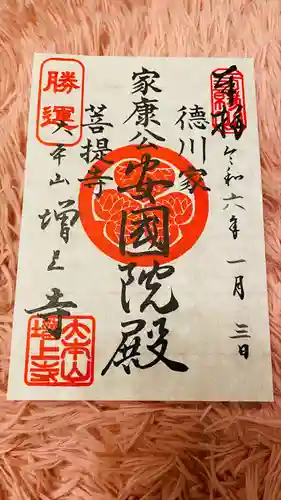 奉拝
令和六年一月三日
徳川家
菩提寺
家康公
安國院殿
勝運
大本山
増上寺
大本山
増上寺